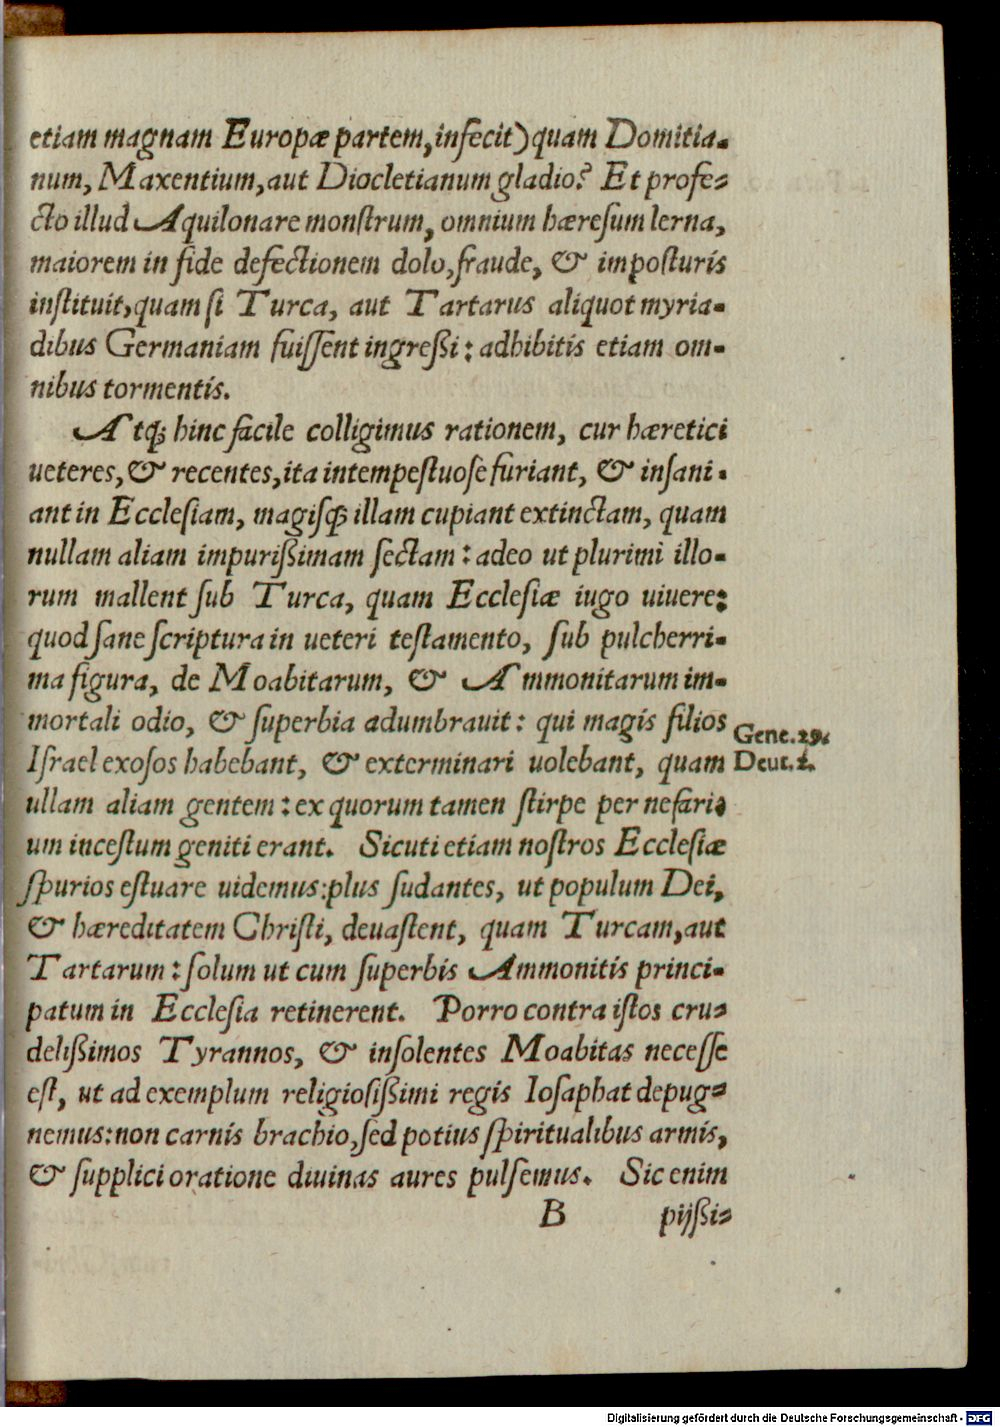 etiam magnam Europæ partem, infecit) quam Domitia-
num, Maxentium, aut Diocletianum gladio? Et profe-
cto illud Aquilonare monſtrum, omnium hæreſum lerna,
maiorem in fide defectionem dolo, fraude, & impoſturis
inſtituit, quam ſi Turca, aut Tartarus aliquot myria-
dibus Germaniam fuiſſent ingreßi: adhibitis etiam om-
nibus tormentis.
Atq; hinc facile colligimus rationem, cur hæretici
ueteres, & recentes, ita intempeſtuoſe furiant, & inſani-
ant in Eccleſiam, magiſq; illam cupiant extinctam, quam
nullam aliam impurißimam ſectam: adeo ut plurimi illo-
rum mallent ſub Turca, quam Eccleſiæ iugo uiuere:
quod ſane ſcriptura in ueteri teſtamento, ſub pulcherri-
ma figura, de Moabitarum, & Ammonitarum im-
mortali odio, & ſuperbia adumbrauit: qui magis filios
Gene. 29.
Iſrael exoſos habebant, & exterminari uolebant, quam
Deut. 2.
ullam aliam gentem: ex quorum tamen ſtirpe per nefari-
um inceſtum geniti erant. Sicuti etiam noſtros Eccleſiæ
ſpurios eſtuare uidemus: plus ſudantes, ut populum Dei,
& hæreditatem Chriſti, deuaſtent, quam Turcam, aut
Tartarum: ſolum ut cum ſuperbis Ammonitis princi-
patum in Eccleſia retinerent. Porro contra iſtos cru-
delißimos Tyrannos, & inſolentes Moabitas neceſſe
eſt, ut ad exemplum religioſißimi regis Ioſaphat depug-
nemus: non carnis brachio, ſed potius ſpiritualibus armis,
& ſupplici oratione diuinas aures pulſemus. Sic enim
B pijßi-
Digitalisierung gefördert durch die Deutsche Forschungsgemeinschaft - DFG